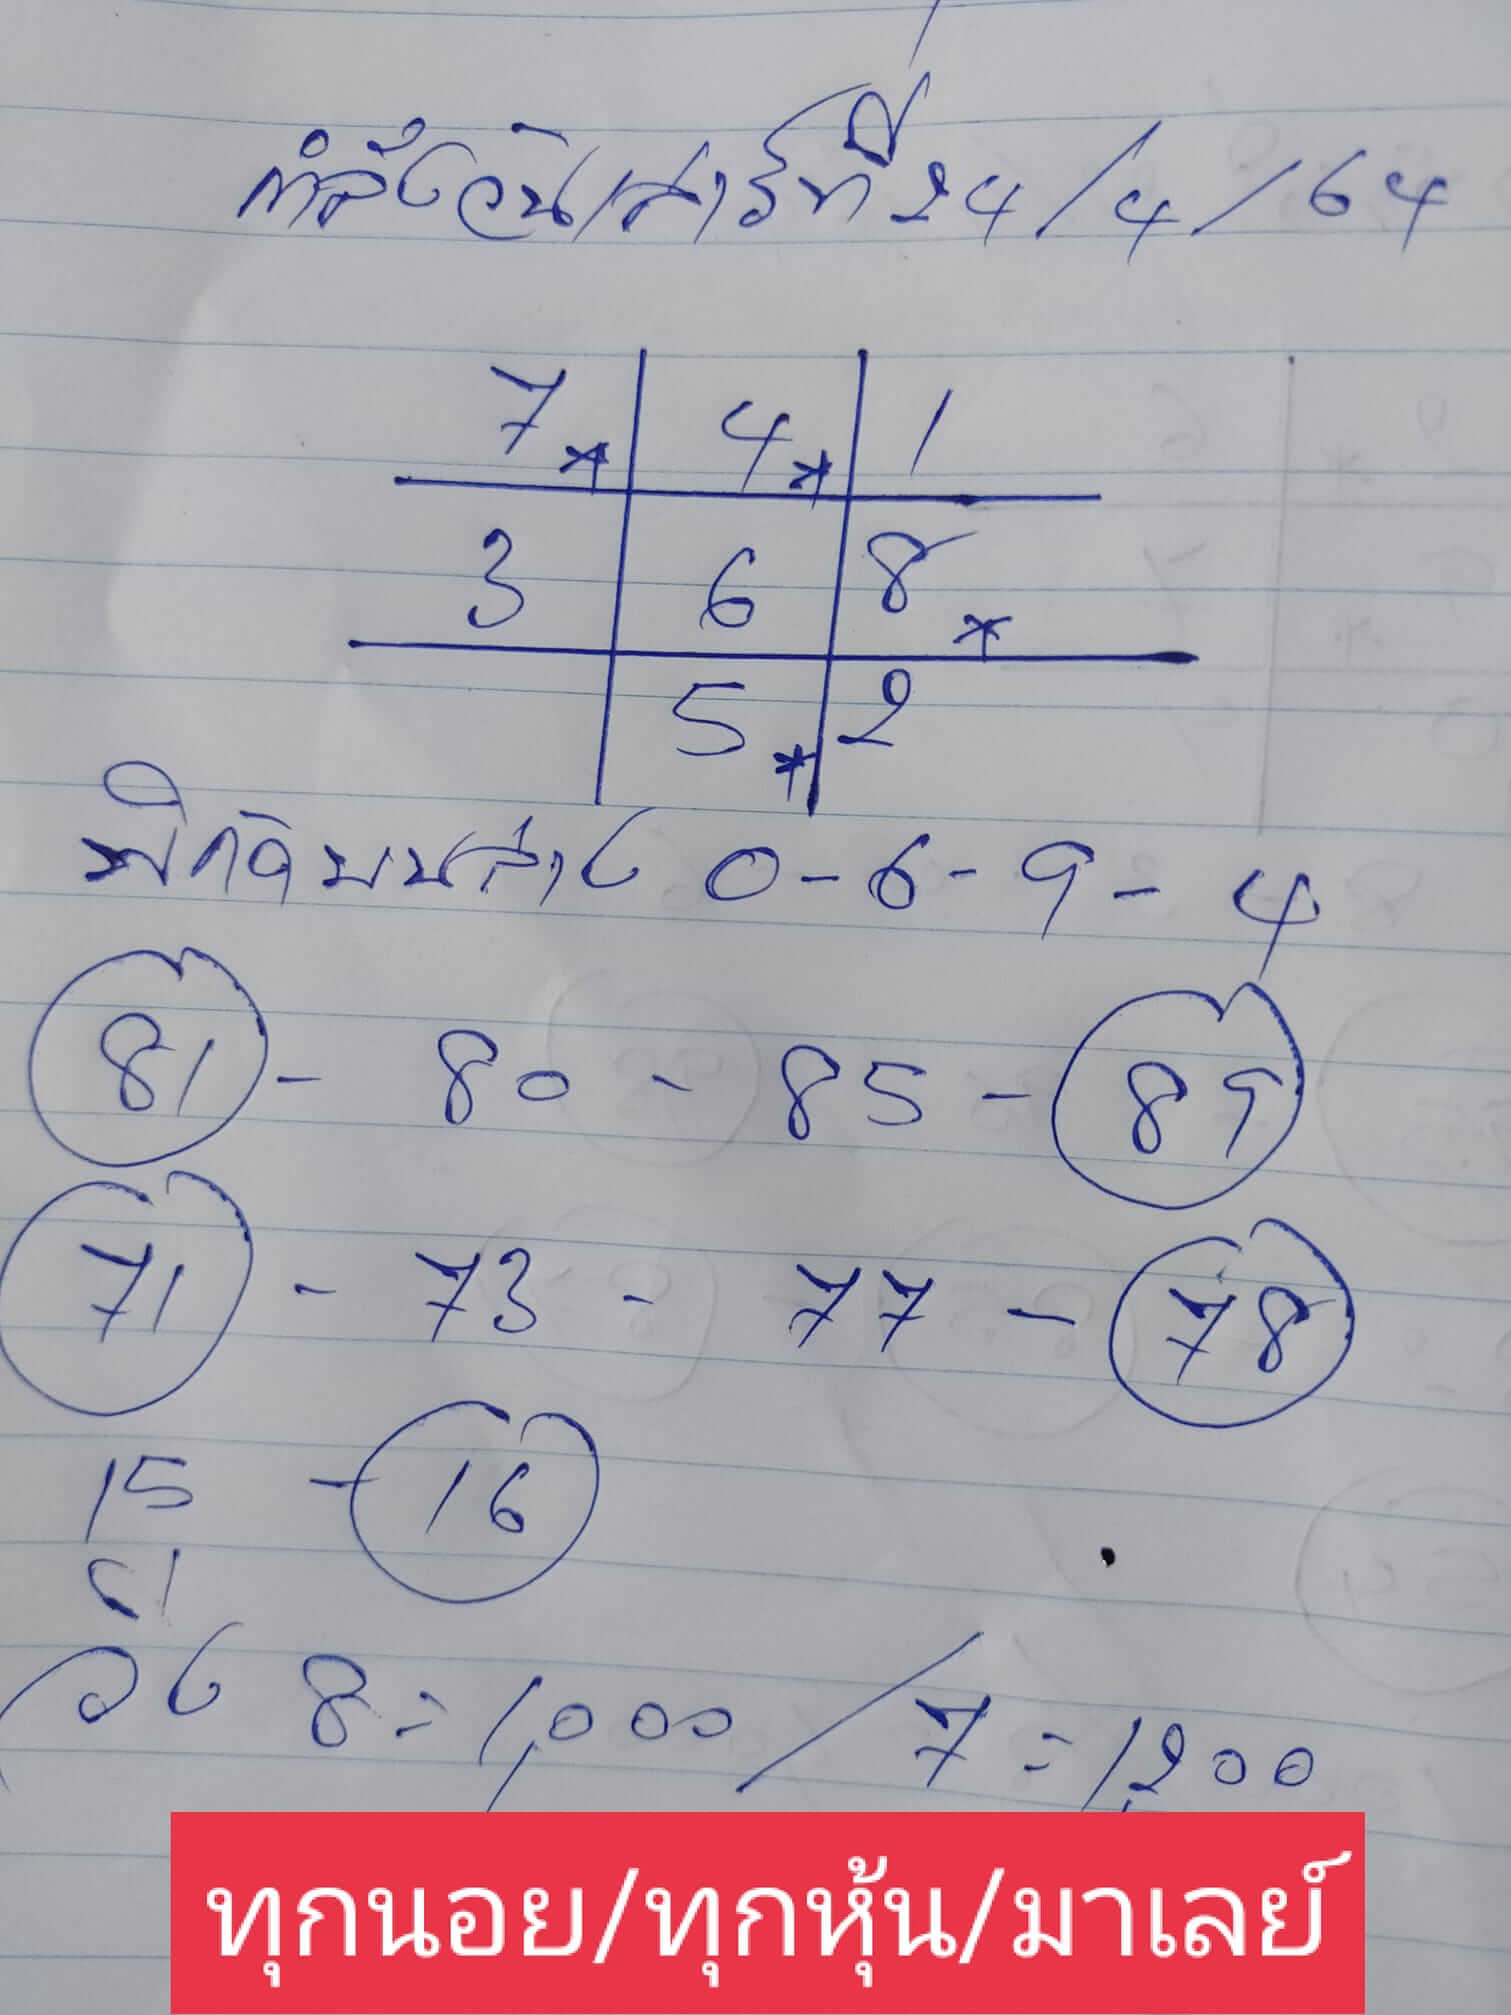 กำลังวันเสาร์ที่ 24/4/64
7* 4* 1
3 6 8*
5* 2
พิกัดบนล่าง 0-6-9-4
81 - 80 - 85 - 89
71 - 73 - 77 - 78
15 - 16
51
วิ่ง 8=1,000/7=1,200
ทุกนอย/ทุกหุ้น/มาเลย์